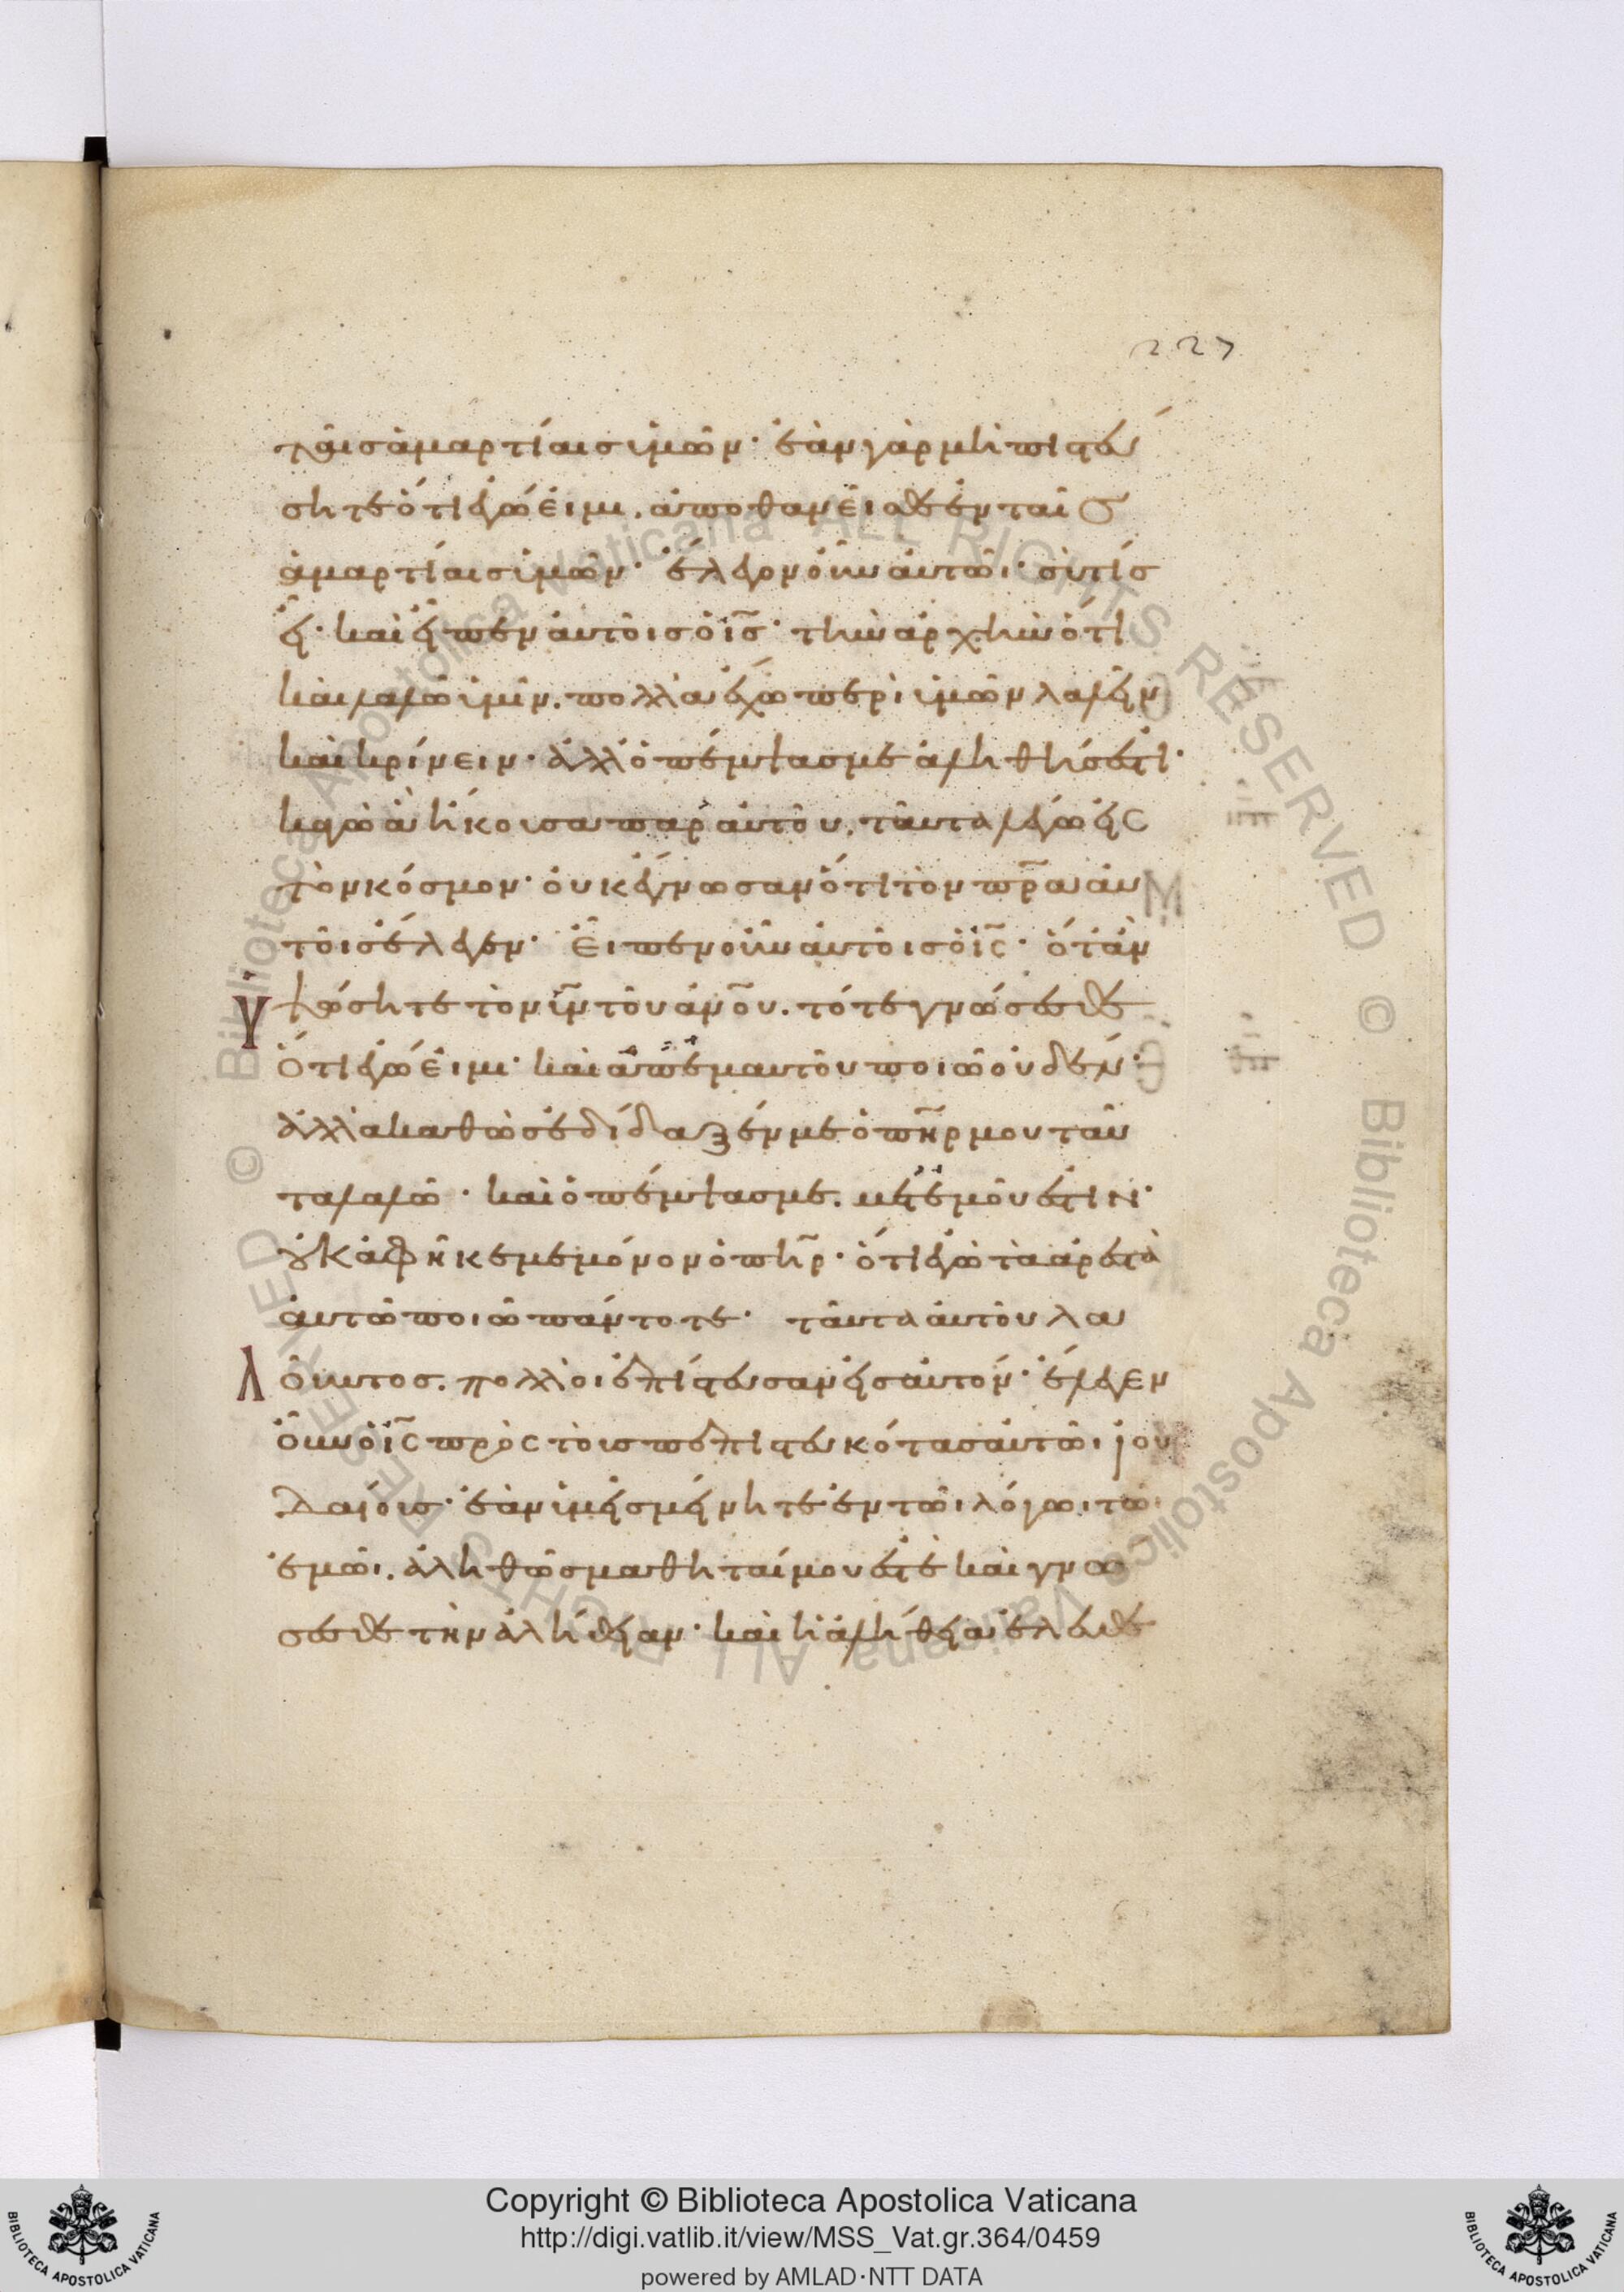 227
ταῖς ἁμαρτίαις ὑμῶν· ἐὰν γὰρ μὴ πιστεύ
σητε ὅτι ἐγώ εἰμι, ἀποθανεῖσθε ἐν ταῖς
ἁμαρτίαις ὑμῶν· ἔλεγον οὖν αὐτῶι· σὺ τίς
εἶ· καὶ εἶπεν αὐτοῖς ὁ ις· τὴν ἀρχὴν ὅτι
καὶ λαλῶ ὑμῖν. πολλὰ ἔχω περὶ ὑμῶν λαλεῖν
καὶ κρίνειν· ἀλλ ὁ πέμψας με ἀληθής ἐστι·
κἀγὼ ἃ ἤκουσα παρ αὐτοῦ, ταῦτα λέγω εἰς
τὸν κόσμον· οὐκ ἔγνωσαν ὅτι τὸν πρα αὐ
τοῖς ἔλεγεν· εἶπεν οὖν αὐτοῖς ὁ ις· ὅταν
ὑψώσητε τὸν υν τοῦ ανου. τότε γνώσεσθε
ὅτι ἐγώ εἰμι· καὶ ἀπ ἐμαυτοῦ ποιῶ οὐδέν·
ἀλλὰ καθὼς ἐδίδαξέν με ὁ πηρ μου ταῦ
τα λαλῶ· καὶ ὁ πέμψας με. μετ ἐμοῦ ἐστιν·
οὐκ ἀφῆκε με μόνον ὁ πηρ· ὅτι ἐγὼ τὰ ἀρεστὰ
αὐτῶ ποιῶ πάντοτε· ταῦτα αὐτοῦ λα
λοῦντος. πολλοὶ ἐπίστευσαν εἰς αὐτόν· ἔλεγεν
οὖν ὁ ις πρὸς τοὺς πεπιστευκότας αὐτῶι ἰου
δαίους· ἐὰν ὑμεῖς μείνητε ἐν τῶι λόγωι τῶ
ἐμῶι. ἀληθῶς μαθηταί μου ἐστὲ καὶ γνώ
σεσθε τὴν ἀλήθειαν· καὶ ἡ ἀλήθεια ἐλευθε
Copyright © Biblioteca Apostolica Vaticana
http://digi.vatlib.it/view/MSS_Vat.gr.364/0459
powered by AMLAD·NTT DATA
BIBLIOTECA APOSTOLICA VATICANA
BIBLIOTECA APOSTOLICA VATICANA
© Biblioteca Apostolica Vaticana ALL RIGHTS RESERVED
© Biblioteca Apostolica Vaticana ALL RIGHTS RESERVED